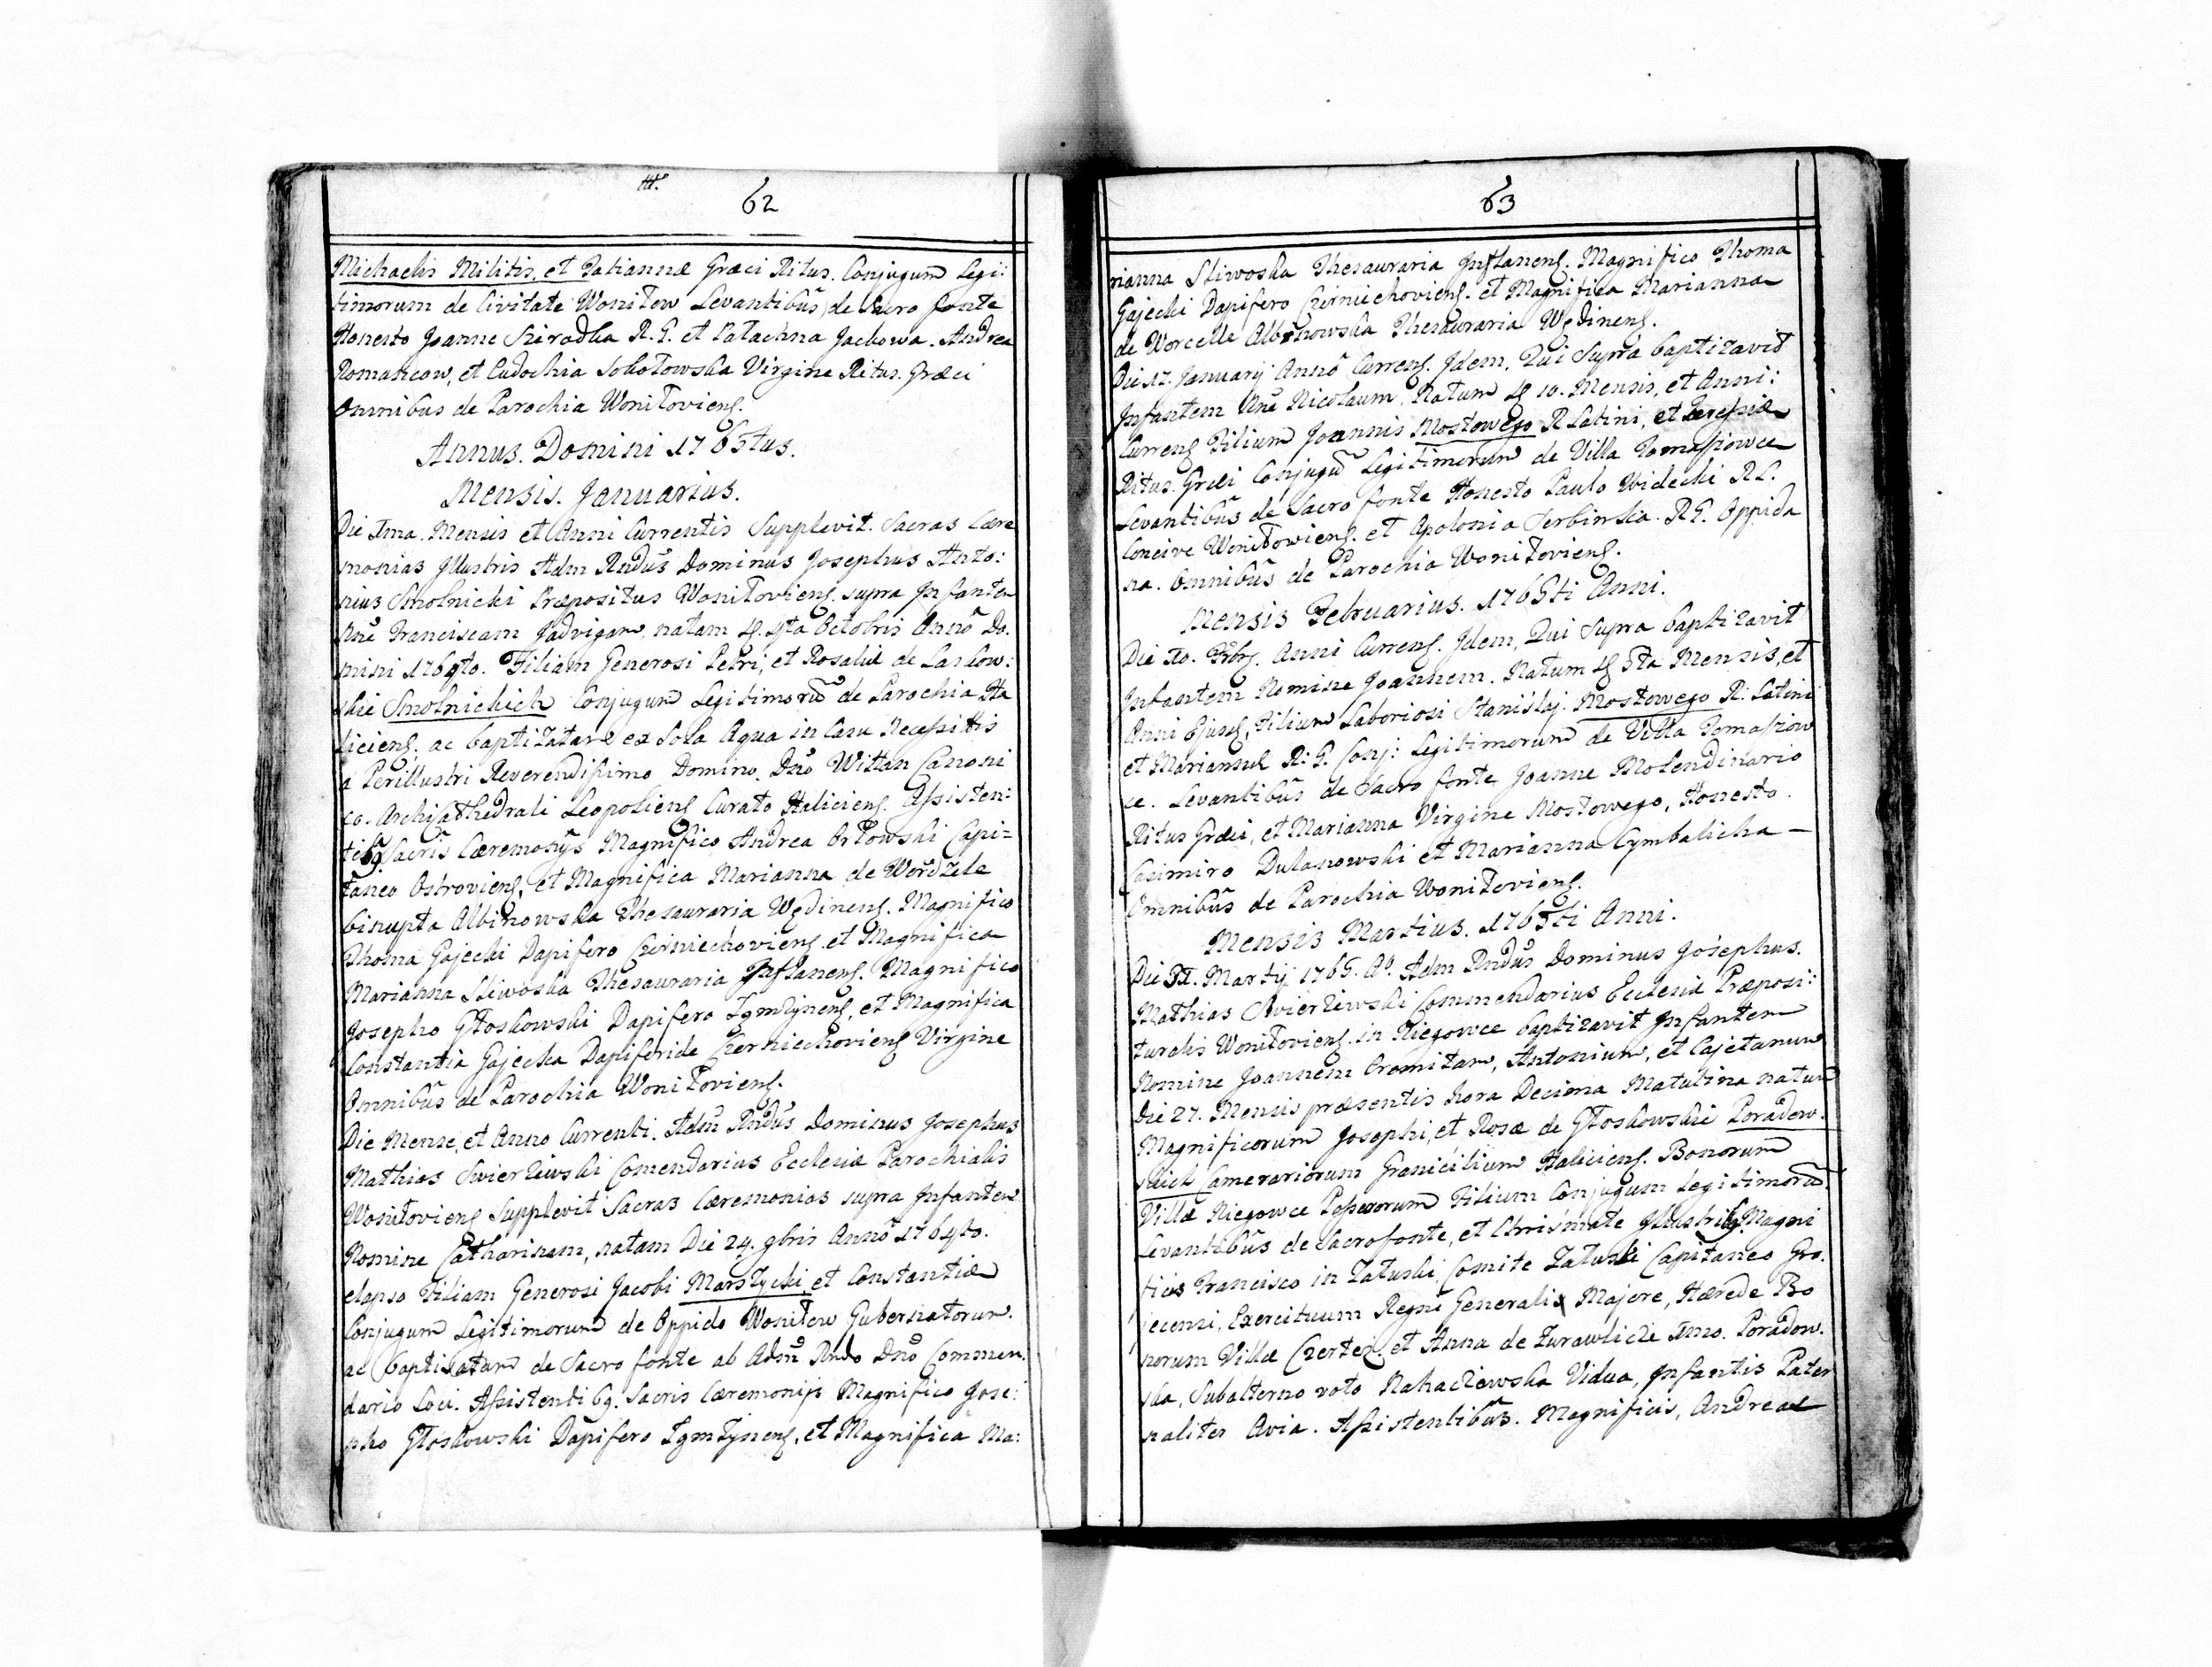 62
Michaelis Militis, et Tatiannæ Græci Ritus. Conjugum Legi:
timorum de Civitate Woniłow Levantibus de Sacro fonte
Honesto Joanne Sieradka R. G. et Patachna Jackowa. Andrea
Romańcow, et Eudochia Sokołowska Virgine Ritus. Græci
Omnibus de Parochia Woniłoviens.
Annus. Domini 1765tus.
Mensis. Januarius.
Die Ima. Mensis et Anni Currentis Supplevit. Sacras Cære
monias Illustris Adm Rndus Dominus Josephus Anto:
nius Smolnicki Præpositus Woniłoviens. supra Infantem
Nne Franciscam Jadvigam, natam d. 4ta Octobris Anno Do.
mini 1764to. Filiam Generosi Petri, et Rosaliæ de Laskow:
skie Smolnickich Conjugum Legitimorū de Parochia Ha
liciens. ac baptizatam ex Sola Aqua in Casu Necessitis
a Perillustri Reverendissimo Domino. Dno Wittan Canoni
co. Archicathedrali Leopoliens Curato Haliciens. Assisten:
tibq. Sacris Cæremonys Magnifico Andrea Orłowski Capi=
taneo Ostroviens, et Magnifica Marianna de Wordzele
binupta Albinowska Thesauraria Wędinens. Magnifico
Thoma Gajecki Dapifero Czerniechoviens. et Magnifica
Marianna Sliwoska Thesauraria Inflanens. Magnifico
Josepho Głoskowski Dapifero Zgmtynens, et Magnifica
Constantia Gajecka Dapiferide Czerniechoviens Virgine
Omnibus de Parochia Woniłoviens.
Die Mense, et Anno Currenti. Adm Rndus Dominus Josephus
Mathias Swierziwski Comendarius Ecclesiæ Parochialis
Woniłoviens Supplevit Sacras Cæremonias supra Infantem
Nomine Catharinam, natam Die 24. 9bris Anno 1764to.
elapso Filiam Generosi Jacobi Marszycki, et Constantiæ
Conjugum Legitimorum de Oppido Woniłow Gubernatorum.
ac baptisatam de Sacro fonte ab Adm Rndo Dno Commen.
dario Loci. Assistentibq. Sacris Cæremonijs Magnifico Jose:
pho Głoskowski Dapifero Zgmtynens, et Magnifica Ma:
63
rianna Sliwoska Thesauraria Inflanens. Magnifico Thoma
Gajecki Dapifero Czerniechoviens. et Magnifica Marianna
de Worcelle Albinowska Thesauraria Wędinens.
Die 17. January Anno Currens. Idem, Qui Supra baptizavit
Infantem Nne Nicolaum. Natum d. 10. Mensis, et Anni:
Currens Filium Joannis Mostowego R. Latini, et
Ritus. Græci Conjugū Legitimorum de Villa Tomaszowce
Levantibus de Sacro fonte Honesto Paulo Widecki R. L.
Concive Woniłowiens. et Apolonia Serbinska. R. G. Oppida
na. Omnibus de Parochia Woniłoviens.
Mensis Februarius. 1765ti Anni.
Die 10. Anni Currens. Idem, Qui Supra baptizavit
Infantem Nomine Joannem. Natum d 5ta Mensis, et
Anni Ejusq, Filium Laboriosi Stanislaj. Mostowego R. Latini
et Mariannæ R: G. Conj: Legitimorum de Villa Tomaszow
ce. Levantibus de Sacro fonte Joanne Molendinario
Ritus Græci, et Marianna Virgine Mostowego, Honesto.
Casimiro Dulanowski et Marianna Cymbalicha –
Omnibus de Parochia Woniłoviens.
Mensis Martius. 1765ti Anni.
Die 31. Martij 1765. Ao. Adm Rndus Dominus Josephus.
Mathias Swierziwski Commendarius Ecclesiæ Præposi:
turalis Woniłoviens. in Niegowce baptizavit Infantem
Nomine Joannem Eremitam, Antonium, et Cajetanum
Die 27. Mensis præsentis hora Decima Matutina natum
Magnificorum Josephi, et Rosæ de Głoskowskie Poradow.
skich Camerariorum Granicilium Haliciens. Bonorum
Villæ Niegowce Possessorum Filium Conjugum Legitimorū.
Levantibus de Sacrofonte, et Chrismate Illustribq. Magni
ficis Francisco in Załuski Comite Załuski Capitaneo Gro.
jecensi, Exercituum Regni Generali Majore, Hærede Bo
norum Villæ Czertez. et Anna de Zurawlicze Imo. Poradow.
ska, Subalterno voto Nahaczewska Vidua, Infantis Pater
naliter Avia. Assistentibus. Magnificis, Andreæ